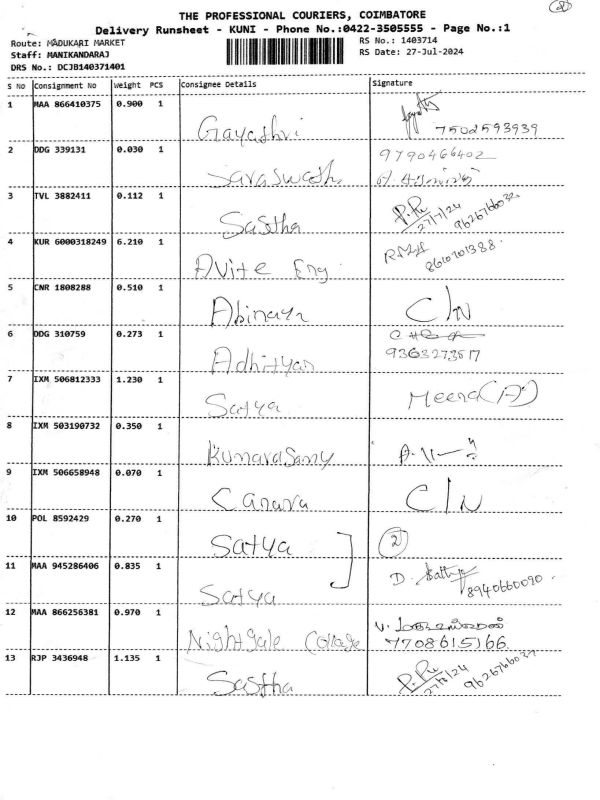 THE PROFESSIONAL COURIERS, COIMBATORE
Delivery Runsheet - KUNI - Phone No.:0422-3505555 - Page No.:1
Route: MADUKARI MARKET
RS No.: 1403714
Staff: MANIKANDARAJ
RS Date: 27-Jul-2024
DRS No.: DCJB140371401
S No Consignment No Weight PCS Consignee Details Signature
1 MAA 866410375 0.900 1 Gayathri 7502593939
2 DDG 339131 0.030 1 Saraswathi 9790466402
3 TVL 3882411 0.112 1 Sastha 27/7/24 9626766032
4 KUR 6000318249 6.210 1 Avite Eng
5 CNR 1808288 0.510 1 Abinaya C/N
6 DDG 310759 0.273 1 Adhityan
7 IXM 506812333 1.230 1 Satya Meena(A)
8 IXM 503190732 0.350 1 Kumarasamy
9 IXM 506658948 0.070 1 Canara C/N
10 POL 8592429 0.270 1 Satya 2
11 MAA 945286406 0.835 1 Satya D. 8940660090
12 MAA 866256381 0.970 1 Nightgale College 7708615166
13 RJP 3436948 1.135 1 Sastha 9626766032